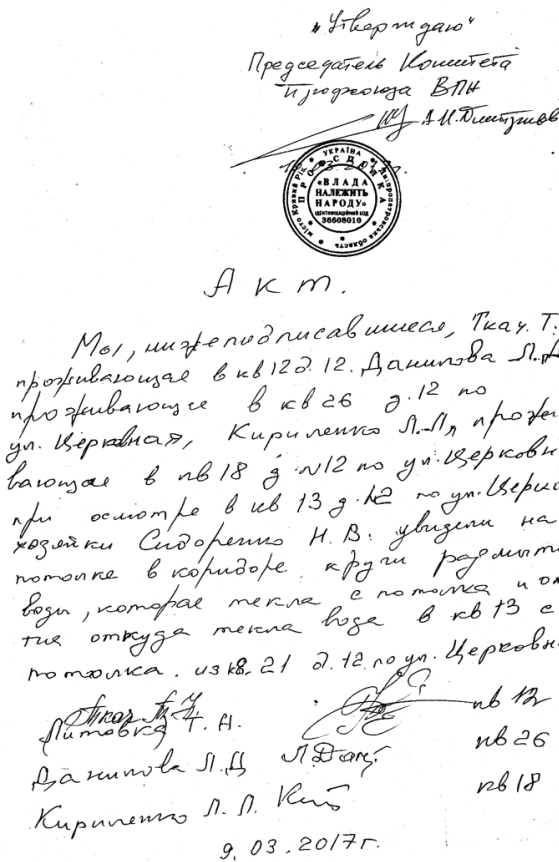 "Утверждаю"
Председатель Комитета
Профсоюза ВПН
УКРАЇНА
місто Кривий Ріг
Дніпропетровська область
ПРОФСПІЛКА
«ВЛАДА
НАЛЕЖИТЬ
НАРОДУ»
ідентифікаційний код
36608010
Акт.
Мы, нижеподписавшиеся, Ткач. Т.
проживающая в кв 12 д. 12. Данилова Л.Д
проживающие в кв 26 д. 12 по
ул. Церковная, Кириленко Л.Л, прожи
вающая в кв 18 д. №12 по ул. Церковн
при осмотре в кв 13 д. №2 по ул. Церко
хозяйки Сидоренко Н.В. увидели на
потолке в коридоре круги размыт
воды, которая текла с потолка и
откуда текла вода в кв 13 с
потолка. из кв. 21 д. 12. по ул. Церковн
Ткач
Литовка Т. Н. кв 12
Данилова Л.Д кв 26
Кириленко Л. Л. кв 18
9. 03. 2017г.